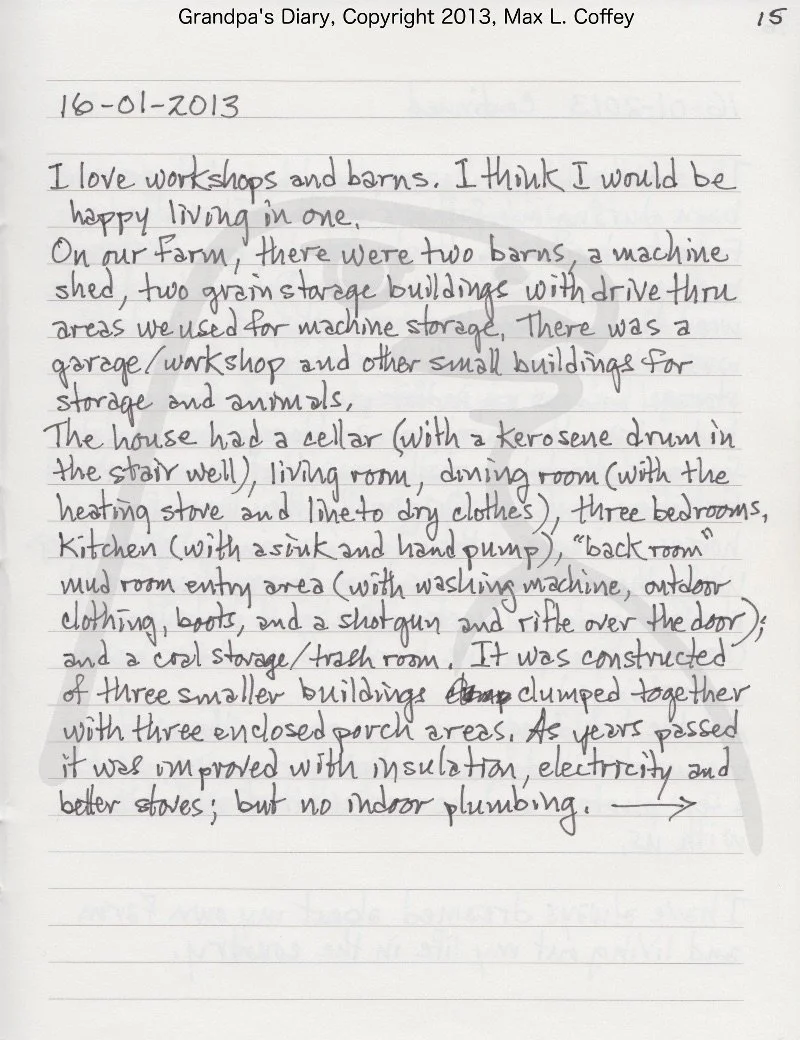 Grandpa's Diary, Copyright 2013, Max L. Coffey
15
16-01-2013
I love workshops and barns. I think I would be
happy living in one.
On our farm, there were two barns, a machine
shed, two grain storage buildings with drive thru
areas we used for machine storage. There was a
garage/workshop and other small buildings for
storage and animals.
The house had a cellar (with a kerosene drum in
the stair well), living room, dining room (with the
heating stove and line to dry clothes), three bedrooms,
kitchen (with a sink and hand pump), "back room"
mud room entry area (with washing machine, outdoor
clothing, boots, and a shotgun and rifle over the door);
and a coal storage/trash room. It was constructed
of three smaller buildings clumped together
with three enclosed porch areas. As years passed
it was improved with insulation, electricity and
better stoves; but no indoor plumbing. →